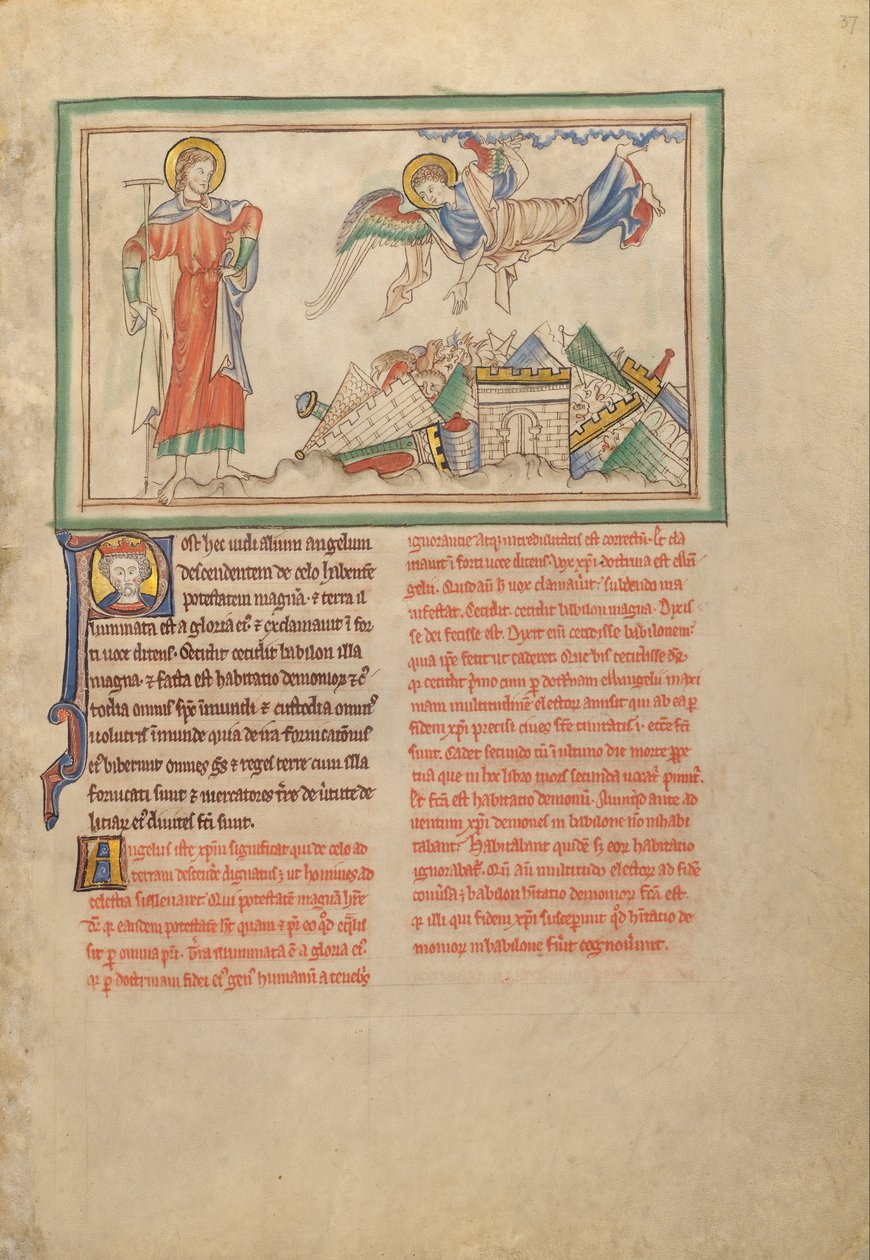 37
Post hec uidi alium angelum
descendentem de celo habente
potestatem magnã · ⁊ terra il
luminata est a gloria eiꝰ · ⁊ exclamauit ĩ for
ti uoce dicens · Cecidit cecidit babilon illa
magna · ⁊ facta est habitatio demonioꝝ ⁊ cꝰ
todia omnis spc̃ inmundi · ⁊ custodia omnis
uolucris inmunde quia de ira fornicatõnis
eiꝰ biberunt omnes gẽs ⁊ reges terre cum illa
fornicati sunt ⁊ mercatores tr̃e de ũtute de
liciaꝝ eiꝰ diuites fc̃i sunt.
Angelus iste xp̃m significat qui de celo ad
terram descende dignatus ; ut homines ad
celestia subleuaret · Qui potestatẽ magnã hr̃e
dr̃ · qꝛ eandem potestatẽ ht̃ quam ⁊ pr̃ · eo qđ eq̃lis
sit ꝑ omnia pr̃i · Tr̃a illuminata ẽ a gloria eiꝰ ·
qꝛ ꝑ doctrinam fidei eiꝰ genꝰ humanũ a tenebris
ignorantie atqꝫ incredulitatis est correctũ · Et cla
mauit ĩ forti uoce dicens · Vox xp̃i · doctrina est euñ
gelii · Quid aũ h̃ uox clamauit : subdendo ma
nifestat · Cecidit · cecidit babilon magna · Dixis
se dei fecisse est · Dixit eñ cecidisse babilonem ·
quia ip̃e fecit ut caderet · Que bis cecidisse dr̃ ·
qꝛ cecidit p̃mo cum ꝑ doctrinam euuangelii maxi
mam multitudinẽ electoꝝ amisit qui ab ea ꝑ
fidem xp̃i precisi ciues sc̃e ciuitatis · i · ecc̃e fc̃i
sunt · Cadet secundo cũ ĩ ultimo die morte ꝑpe
tua que in hoc libro mors secunda uocat̃ puniet̃ ·
Et fc̃a est habitatio demonũ · Nunq̃d ante ad
uentum xp̃i demones in babilone nõ inhabi
tabant? Habitabant quidẽ ; sꝫ eoꝝ habitatio
ignorabat̃ · Qñ aũ multitudo electoꝝ ad fidẽ
conũsa ; babilon habitatio demonioꝝ fc̃a est ·
qꝛ illi qui fidem xp̃i susceperunt qđ habitatio de
monioꝝ in babilone fũit cognouerunt .